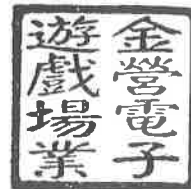 金營電子
遊戲場業